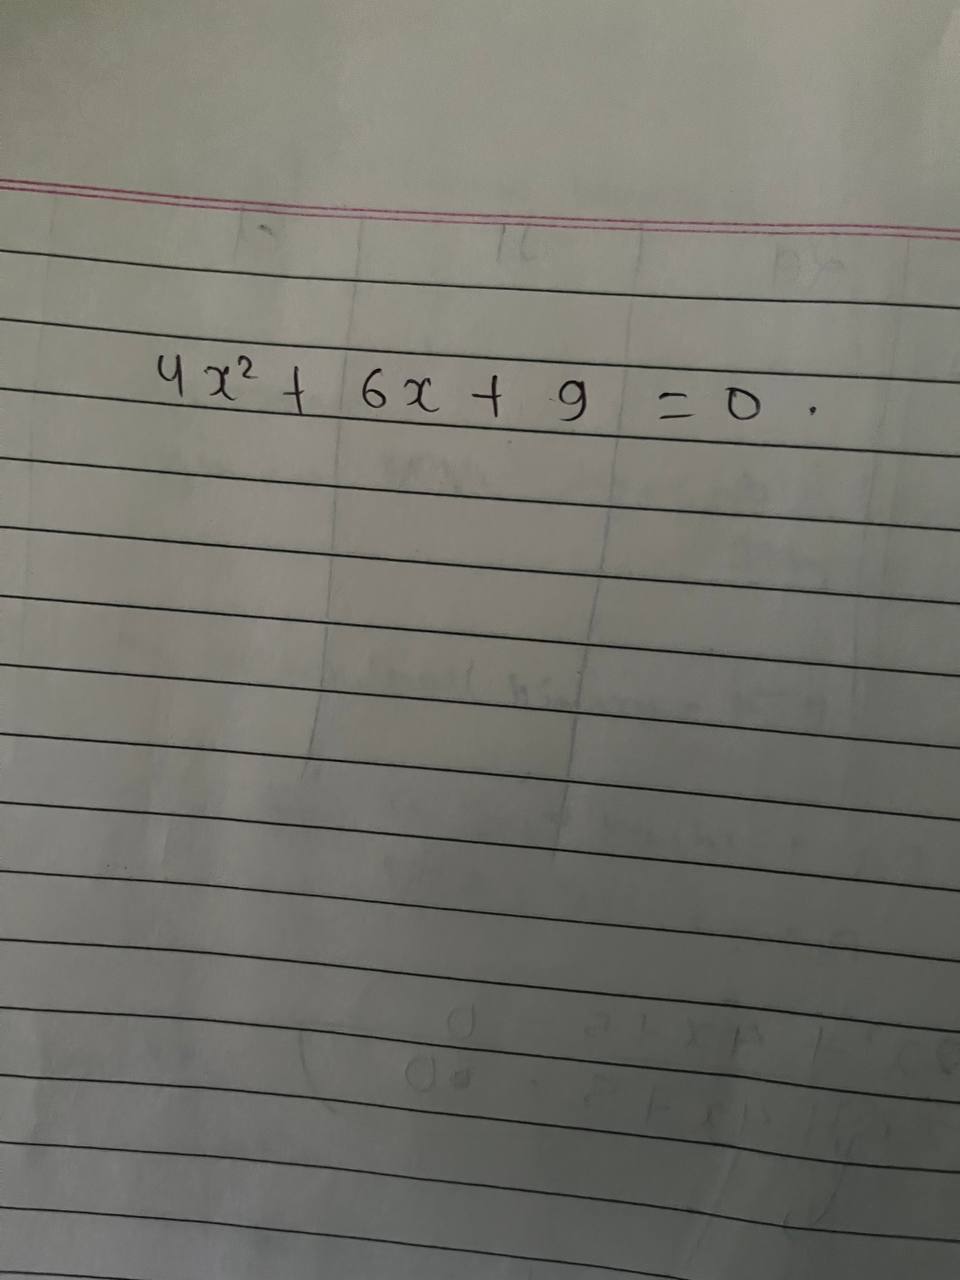 4x² + 6x + 9 = 0 .